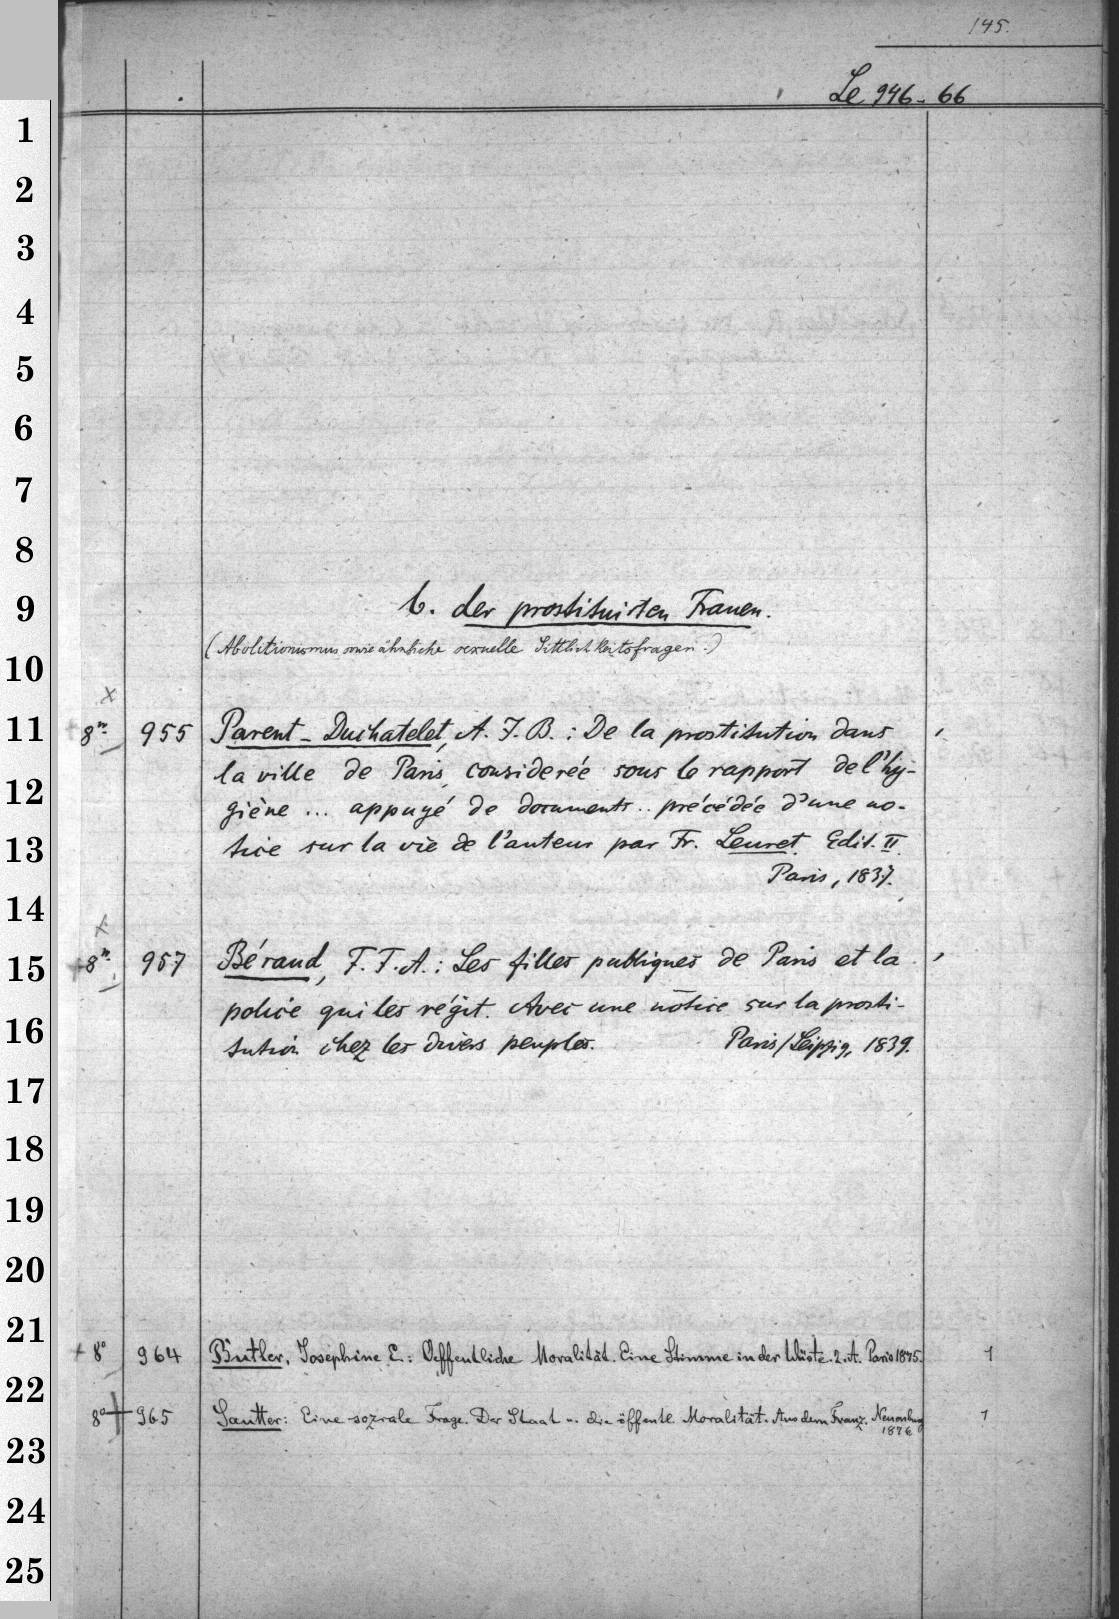 145.
Le 946-66
1
2
3
4
5
6
7
8
b. der prostituirten Frauen.
9
(Abolitionismus sowie ähnliche sexuelle Sittlichkeitsfragen.)
10
x
11 8° 955 Parent-Duchatelet, A. J. B.: De la prostitution dans
la ville de Paris, considerée sous le rapport de l'hy-
12
giène ... appuyé de documents .. précédée d'une no-
13 tice sur la vie de l'auteur par Fr. Leuret. Edit. II.
Paris, 1837.
14
x
15 +8° 957 Béraud, F. F. A.: Les filles publiques de Paris et la
police qui les régit. Avec une notice sur la prosti-
16 tution chez les divers peuples. Paris/Leipzig, 1839.
17
18
19
20
21
+ 8° 964 Butler, Josephine E.: Oeffentliche Moralität. Eine Stimme in der Wüste. 2. A. Paris 1875. 1
22
8° + 965 Sautter: Eine soziale Frage. Der Staat u. die öffentl. Moralität. Aus dem Franz. Neuenburg 1
1876
23
24
25